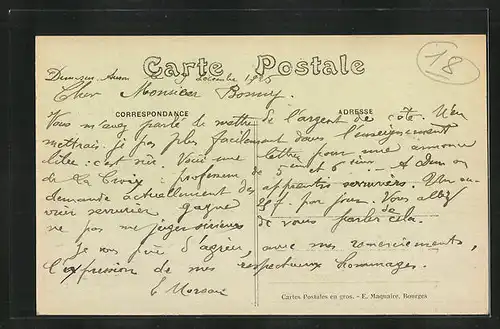 Carte Postale
Dun-sur-Auron décembre 1925
18
Cher Monsieur Bonny,
CORRESPONDANCE ADRESSE
Vous m'avez parlé de mettre de l'argent de côté. N'en
mettrais-je pas plus facilement dans l'enseignement
libre. c'est sûr. Voici une lettre pour une annonce
de La Croix. professeur de 5eme et 6
demande actuellement des apprentis serruriers. Un ou-
vrier serrurier gagne 20f. par jour. Vous allez
ne pas me juger sérieux de vous parler de cela.
Je vous prie d'agréer, avec mes remerciements,
l'expression de mes respectueux hommages.
Cartes Postales en gros. - E. Maquaire, Bourges